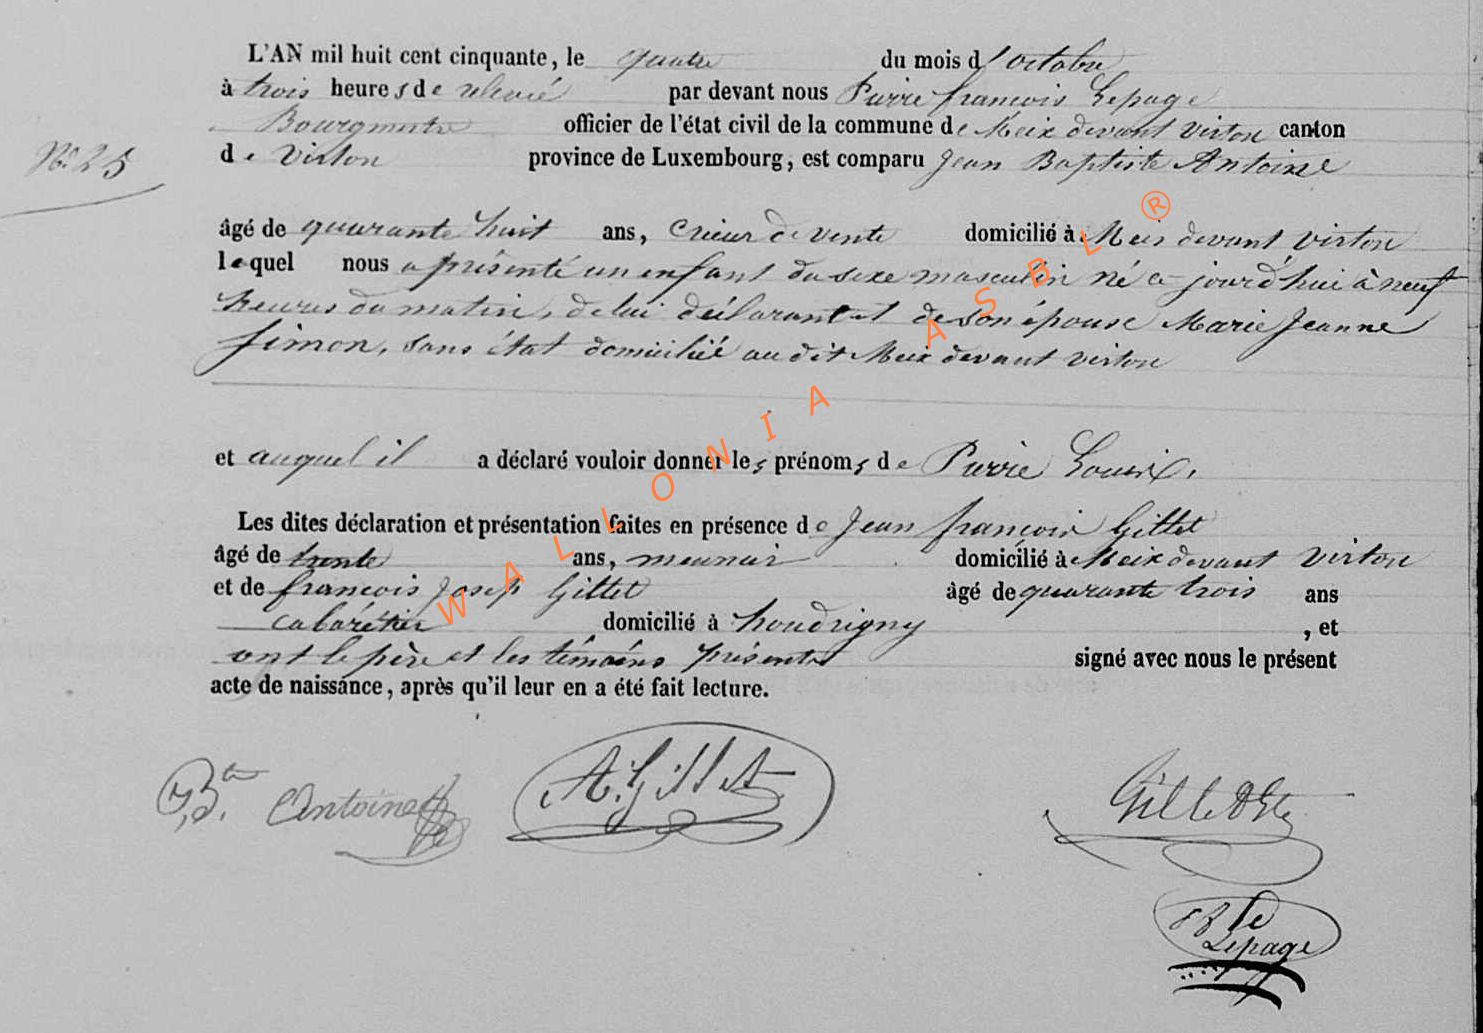 L'AN mil huit cent cinquante, le quatre du mois d'octobre
à trois heures de relevée par devant nous Pierre françois Lepage
Bourgmestre officier de l'état civil de la commune de Meix devant virton canton
de virton province de Luxembourg, est comparu Jean Baptiste Antoine
N° 25
âgé de quarante huit ans, crieur de vente domicilié à Meix devant virton
lequel nous a présenté un enfant du sexe masculin né ce jourd'hui à neuf
heures du matin, de lui déclarant et de son épouse Marie Jeanne
Simon, sans état domicilié au dit Meix devant virton
et auquel il a déclaré vouloir donner les prénoms de Pierre Louis,
Les dites déclaration et présentation faites en présence de Jean françois Gillet
âgé de trente ans, meunier domicilié à Meix devant virton
et de françois Josep Gillet âgé de quarante trois ans
cabarétier domicilié à houdrigny , et
ont le père et les témoins présents signé avec nous le présent
acte de naissance, après qu'il leur en a été fait lecture.
J,Bte. Antoine A.Gillet Gillet
Lepage
WALLONIA ASBL ®